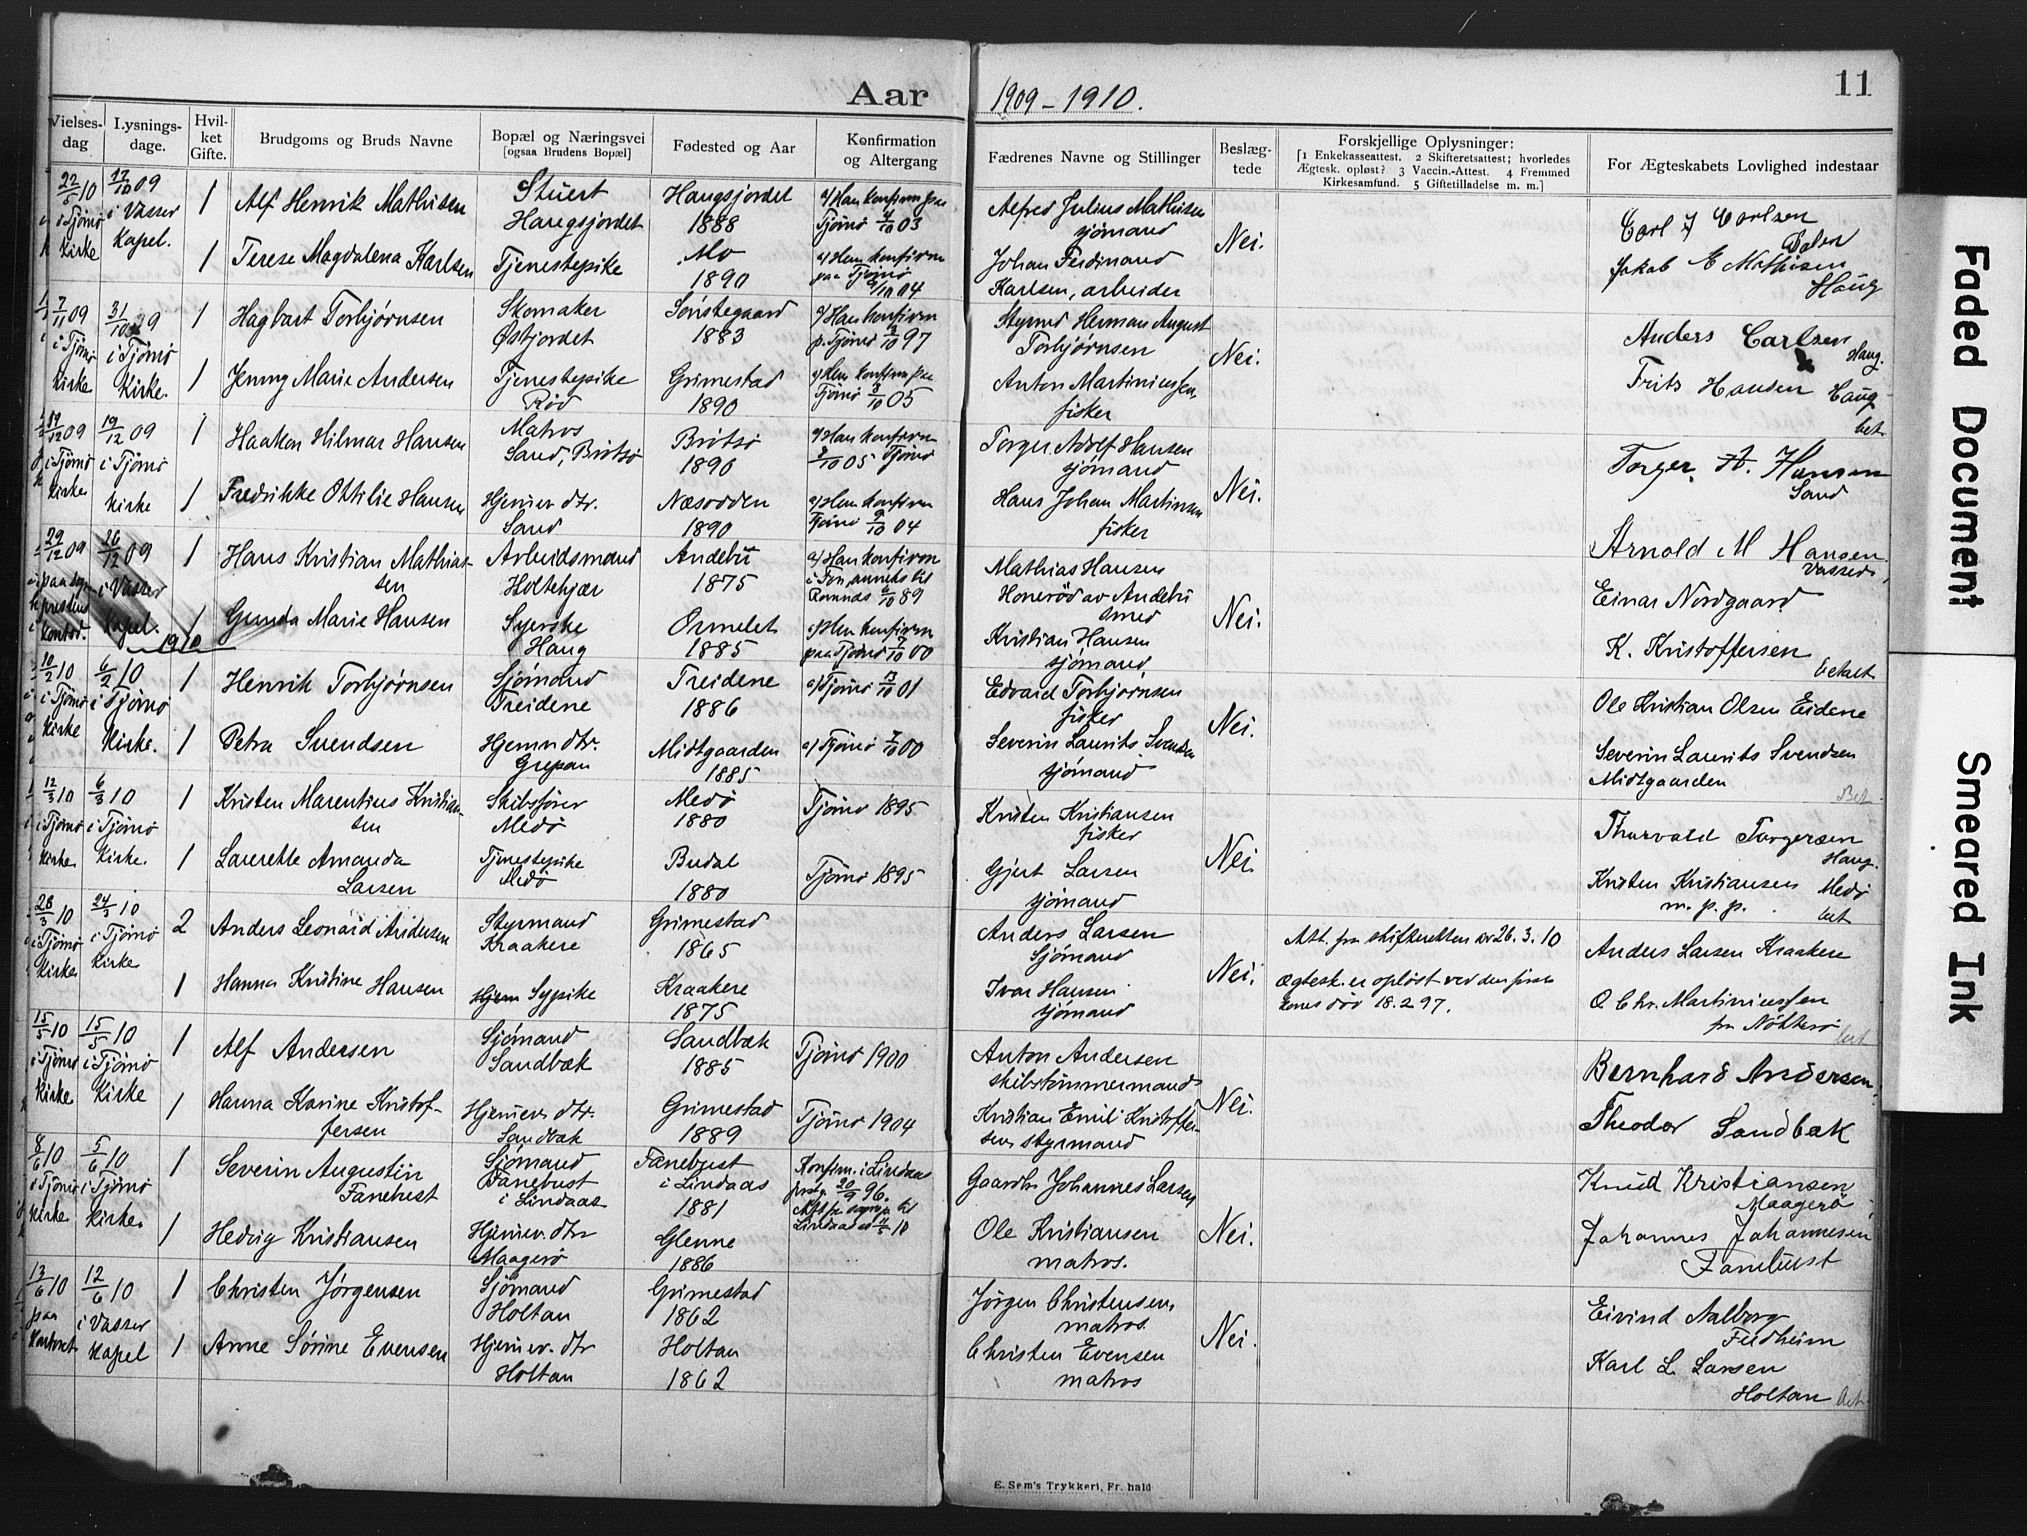 Aar 1909 – 1910.
11
Vielses-dag
Lysnings-dage.
Hvil-ket Gifte.
Brudgoms og Bruds Navne
Bopæl og Næringsvei [ogsaa Brudens Bopæl]
Fødested og Aar
Konfirmation og Altergang
Fædrenes Navne og Stillinger
Beslæg-tede
Forskjellige Oplysninger: [1 Enkekasseattest. 2 Skifteretsattest; hvorledes Ægtesk. opløst? 3 Vaccin.-Attest. 4 Fremmed Kirkesamfund. 5 Giftetilladelse m. m.]
For Ægteskabets Lovlighed indestaar
i Tjømø Kirke
17/10 09 i Vasser Kapel.
1 Alf Henrik Mathisen
Stuert Haugsjordet
Haugsjordet 1888
a/ Han konfirm paa Tjømø 4/10 03
Alfred Julius Mathisen sjømand
Nei.
Carl J Carlsen
1 Terese Magdalena Karlsen
Tjenestepike
Mo 1890
a/ Hun konfirm paa Tjømø 9/10 04
Johan Ferdinand Karlsen, arbeider
Jakob E Mathisen Haug
7/11 09 i Tjømø Kirke
31/10 09 i Tjømø Kirke.
1 Hagbart Torbjørnsen
Skomaker Østjordet
Sønstegaard 1883
a/ Han konfirm p. Tjømø 3/10 97
Styrmd Herman August Torbjørnsen
Nei.
Anders Carlsen Haug.
1 Jenny Marie Andersen
Tjenestepike Rød
Grimestad 1890
a/ Hun konfirm paa Tjømø 8/10 05
Anton Martiniussen, fisker
Frits Hansen Haug
bet
19/12 09 i Tjømø Kirke
19/12 09 i Tjømø Kirke
1 Haakon Hilmar Hansen
Matros Sand, Brøtsø
Brøtsø 1890
a/ Han konfirm 8/10 05 Tjømø
Torger Adolf Hansen sjømand
Nei.
Torger A. Hansen Sand
1 Fredrikke Ottilie Hansen
Hjemmev. dtr. Sand
Næsodden 1890
a/ Hun konfirm Tjømø 9/10 04
Hans Johan Martinsen fisker
Arnold M Hansen
29/12 09 paa sogneprestens Kontor.
26/12 09 i Vasser Kapel.
1 Hans Kristian Mathiassen
Arbeidsmand Holtekjær
Andebu 1875
a/ Han konfirm i Fon, anneks til Ramnæs 6/10 89
Mathias Hansen Honerød av Andebu smed
Nei.
Einar Nordgaard
1 Gunda Marie Hansen
Syerske Haug
Ormelet 1885
a/ Hun konfirm paa Tjømø 7/10 00
Kristian Hansen sjømand
K. Kristoffersen
Betalt
1910
10/2 10 i Tjømø Kirke
6/2 10 i Tjømø Kirke.
1 Henrik Torbjørnsen
Sjømand Treidene
Treidene 1886
a/ Tjømø 13/10 01
Edvard Torbjørnsen fisker
Nei.
Ole Kristian Olsen Eidene
1 Petra Svendsen
Hjemmv dtr. Grepan
Midtgaarden 1885
a/ Tjømø 7/10 00
Severin Laurits Svendsen sjømand
Severin Laurits Svendsen Midtgaarden
Bet.
12/3 10 i Tjømø Kirke
6/3 10 i Tjømø Kirke.
1 Kristen Marentius Kristiansen
Skibsfører Medø
Medø 1880
Tjømø 1895
Kristen Kristiansen fisker
Nei.
Thorvald Torgersen Haug.
1 Laurette Amanda Larsen
Tjenestepike Medø
Budal 1880
Tjømø 1895
Gjert Larsen sjømand
Kristen Kristiansen Medø m. p. p.
bet
28/3 10 i Tjømø Kirke
24/3 10 i Tjømø Kirke
2 Anders Leonard Andersen
Styrmand Kraakere
Grimestad 1865
Anders Larsen Sjømand
Nei.
Att. fra skifteretten av 26. 3. 10
Ægtesk. er opløst ved den første kones død 18.2 97.
Anders Larsen Kraakere
1 Hanna Kristine Hansen
Hjem Sypike
Kraakere 1875
Ivar Hansen sjømand
O Chr. Martiniussen fra Nøtterø
bet
15/5 10 i Tjømø Kirke
15/5 10 i Tjømø Kirke
1 Alf Andersen
Sjømand Sandbæk
Sandbæk 1885
Tjømø 1900
Anton Andersen skibstømmermand
Nei.
Bernhard Andersen
1 Hanna Karine Kristoffersen
Hjemmev. dtr. Sandbæk
Grimestad 1889
Tjømø 1904
Kristian Emil Kristoffersen styrmand
Theodor Sandbæk
8/6 10 i Tjømø Kirke
5/6 10 i Tjømø Kirke
1 Severin Augustin Fanebust
Sjømand Fanebust i Lindaas
Fanebust i Lindaas 1881
Konfirm. i Lindaas prstgj. 20/9 96.
Gaardbr Johannes Larsen
Nei.
Knud Kristiansen Maagerø
1 Hedvig Kristiansen
Hjemmev. dtr Maagerø
Glenne 1886
Ole Kristiansen matros.
Johannes Johannesen Fanebust
13/6 10 paa Kontoret
12/6 10 i Vasser Kapel
1 Christen Jørgensen
Sjømand Holtan
Grimestad 1862
Jørgen Christensen, matros.
Nei.
Eivind Aalborg
1 Anne Sørine Evensen
Hjemmev. dtr Holtan
Holtan 1862
Christen Evensen matros
Karl L. Larsen Holtan
bet.
E. Sem's Trykkeri, Fr. hald
Faded Document
Smeared Ink